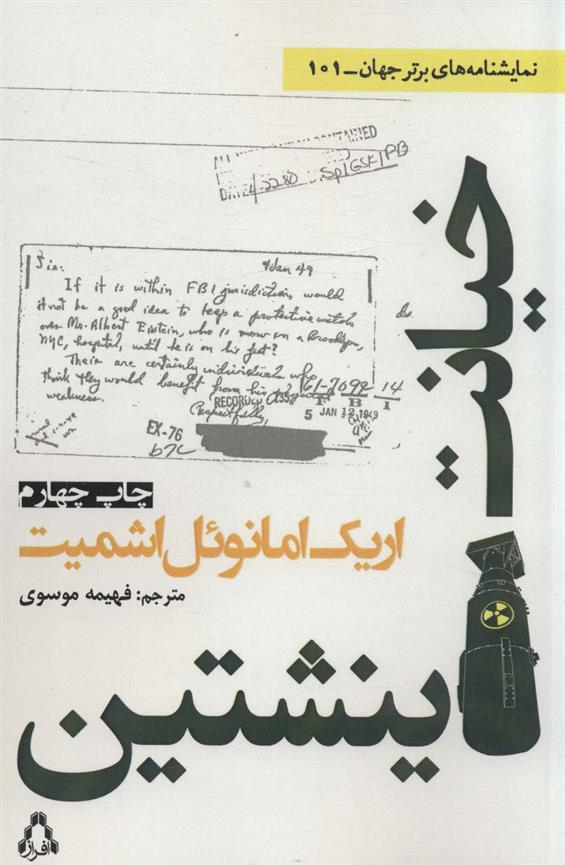 نمایشنامه‌های برتر جهان_۱۰۱
CONTAINED
DATE 4-22-80 Sp1GSK/PB
خیانت
Sir: 9 Jan 49
If it is within FBI jurisdiction, would
it not be a good idea to keep a protective watch
over Mr. Albert Eistein, who is now in a Brooklyn,
NYC, hospital, until he is on his feet?
Their are certainly individuals who
think they would benefit from his
weakness.
Respectfully
RECORDED
61-7099 14
F B I
5 JAN 12 1949
EX-76
b7C
چاپ چهارم
اریک امانوئل اشمیت
مترجم: فهیمه موسوی
اینشتین
افراز